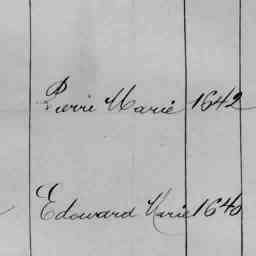 Pierre Marie 1642
Edouard Marie 1640